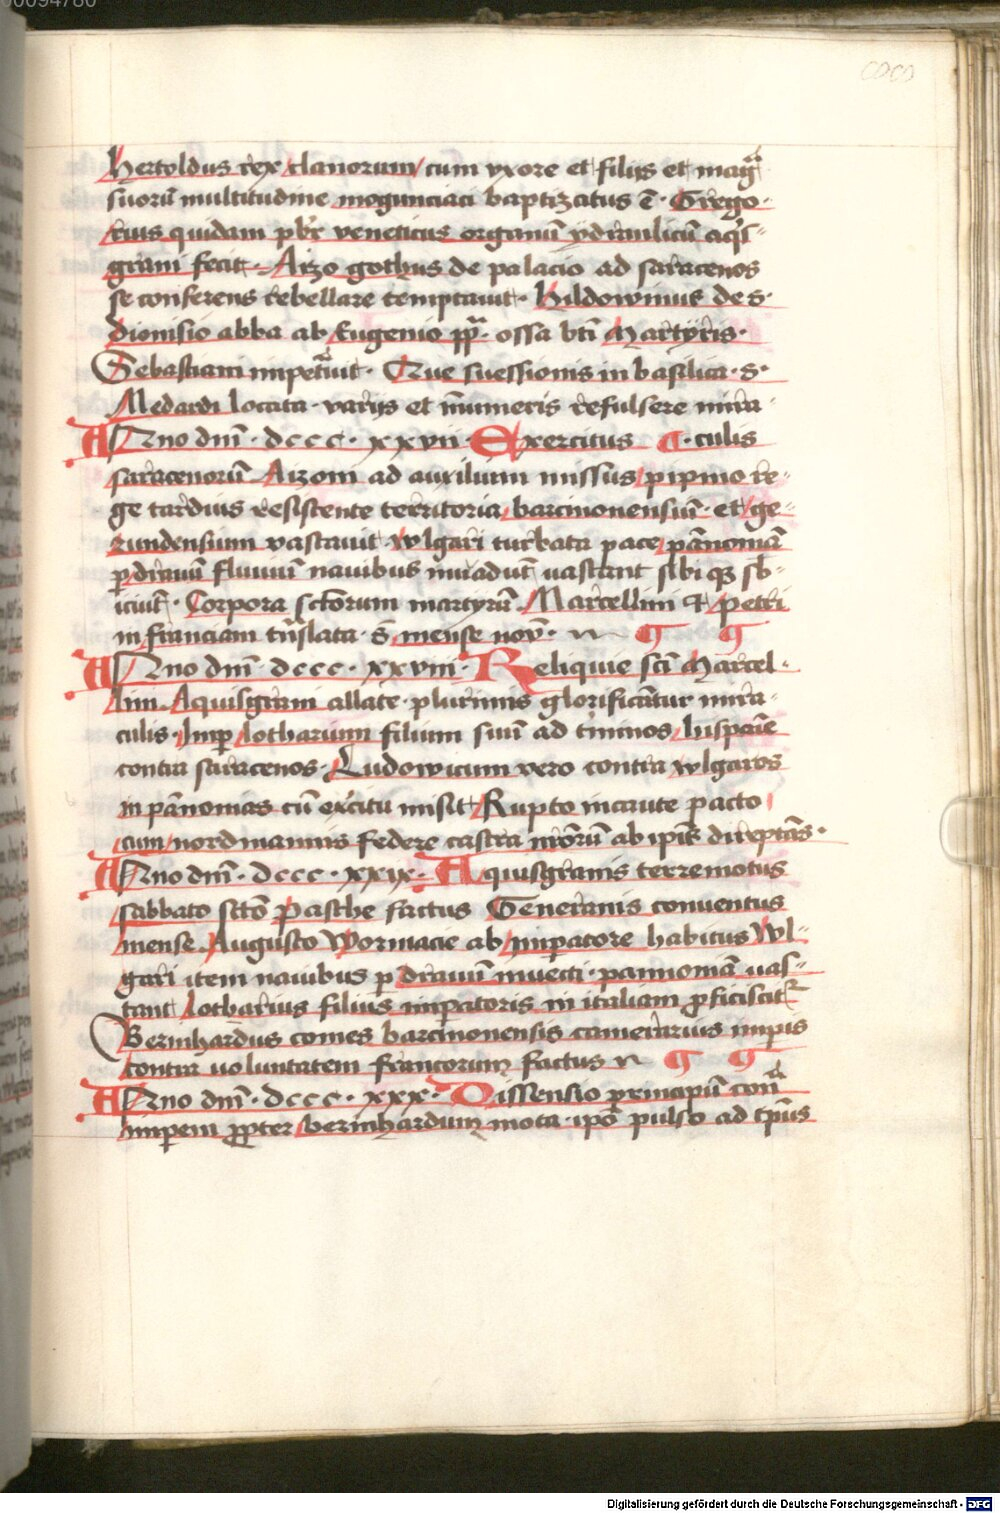 00094780
Hertoldus rex clanorum cum vxore et filijs et magͣ
suorū multitudine mogunciaci baptizatus ē · Grego-
rius quidam pbr̄ veneticus organū ydraulicū aqs̓-
grani fecit · Aizo gothus de palacio ad saracenos
se conferens rebellare temptauit · Hildowinus de s·
dionisio abba ab Eugenio pp̄ · ossa bt̄i Martyris ·
Sebastiani impetͣuit · Que suessionis in basilica · s·
Medardi locata · varijs et īnumeris refulsere mira-
ANno dn̄i · dccc · xxvii · Exercitus ¶ · culis
saracenorū Aizoni ad auxilium missus pipino re-
ge tardius resistente territoria barcinonensiū · et ge-
rundensium vastauit wlgari turbata pace pānoniā
p drauū fluuiū nauibus inuadūt uastant sibi qꝫ sb̄-
iciūt · Corpora sctōrum martyrū Marcellini & petri
in franciam tn̄slata · s̄ mense nov̄ ·
ANno dn̄i · dccc · xxviii · Reliquie scī Marcel-
lini Aquisgrani allate plurimis glorificātur mira-
culis · Imp lotharium filium suū ad tm̄inos hispanie
contra saracenos · Ludowicum vero contra wlgaros
in pānonias cū exc̄itu misit Rupto incaute pacto
cum nordmannis federe castra nr̄orū ab ip̄is direpta s̄ ·
ANno dn̄i · dccc · xxix · Aquisgranis terremotus
sabbato sctō Pasche factus Generanis conuentus
mense Augusto Wormacie ab impatore habitus Wl-
gari item nauibus p drauū inuecti · pannoniā uas-
tant Lotharius filius impatoris in italiam pficiscit᷑
Bernhardus comes barcinonensis camerarius impis
contra uoluntatem francorum factus
ANno dn̄i · dccc · xxx · Dissensio principū con̄
impem ppter bernhardum mota · ipō pulso ad tp̄us
Digitalisierung gefördert durch die Deutsche Forschungsgemeinschaft - DFG